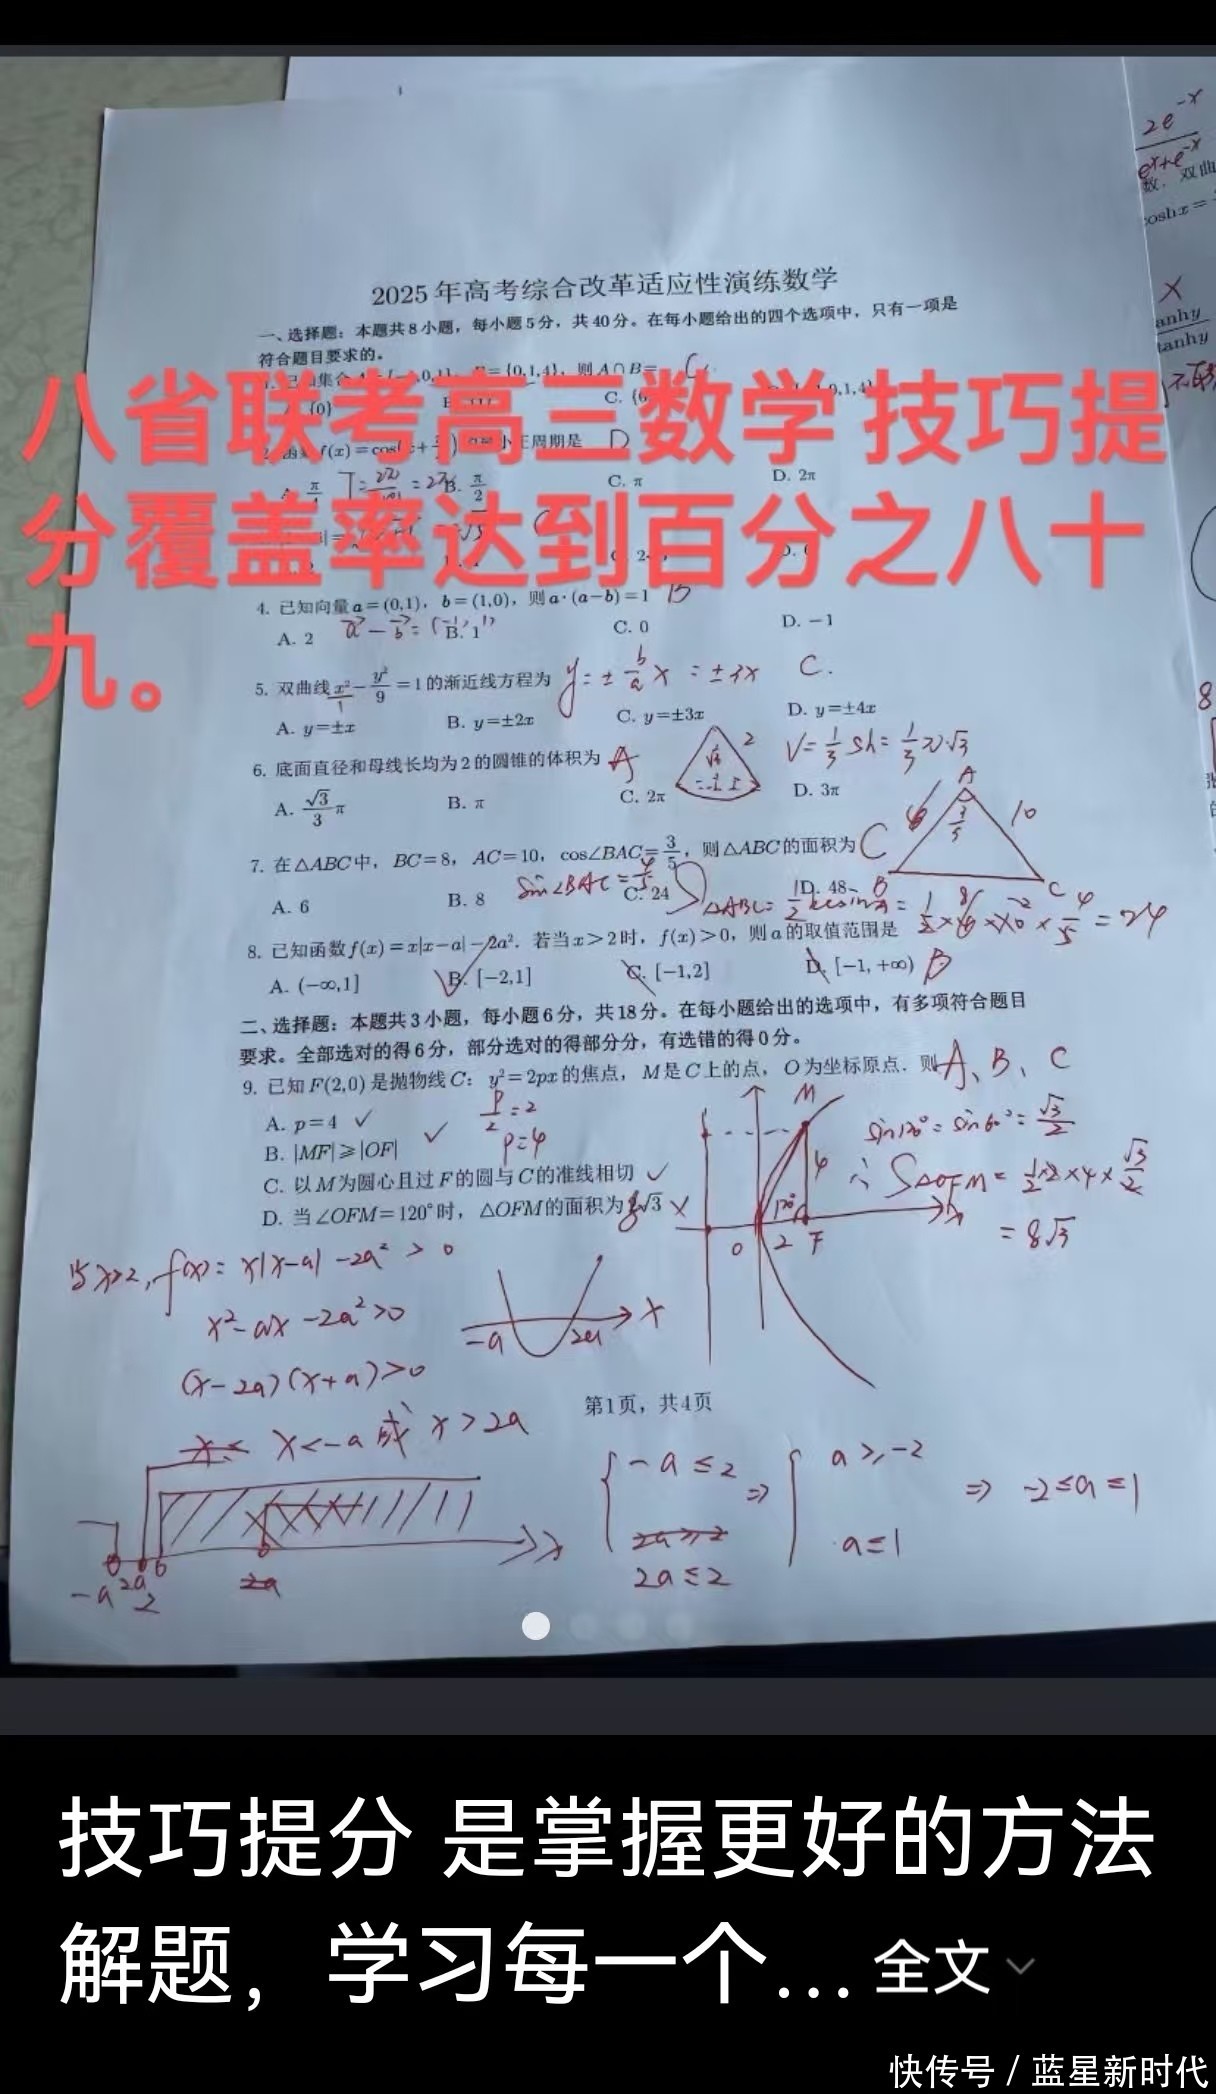 2e^{-x}
e^x+e^{-x}
数. 双曲
coshx=
2025年高考综合改革适应性演练数学
一、选择题：本题共8小题，每小题5分，共40分。在每小题给出的四个选项中，只有一项是
符合题目要求的。
集合 {0,1,4}，则A∩B= C
{0} C.
f(x)=cos 小正周期是 D
π/4 T= =2π B. π/2 C. π D. 2π
八省联考高三数学 技巧提
分覆盖率达到百分之八十
九。
4. 已知向量a=(0,1)，b=(1,0)，则a·(a−b)=1 B
A. 2 B. 1 C. 0 D. −1
a−b=(−1, 1)
5. 双曲线x²−y²/9=1的渐近线方程为 y=±b/a x=±3x C.
A. y=±x B. y=±2x C. y=±3x D. y=±4x
6. 底面直径和母线长均为2的圆锥的体积为 A √3 2 V=1/3 Sh=1/3π·√3
A. √3/3 π B. π C. 2π D. 3π
7. 在△ABC中，BC=8，AC=10，cos∠BAC=3/5，则△ABC的面积为 C
A. 6 B. 8 C. 24 D. 48
sin∠BAC=4/5
A 10 3/5 B 8 C
S△ABC=1/2 bcsinA= =24
8. 已知函数f(x)=x|x−a|−2a²．若当x>2时，f(x)>0，则a的取值范围是
A. (−∞,1] B. [−2,1] C. [−1,2] D. [−1,+∞) B
二、选择题：本题共3小题，每小题6分，共18分。在每小题给出的选项中，有多项符合题目
要求。全部选对的得6分，部分选对的得部分分，有选错的得0分。
9. 已知F(2,0)是抛物线C：y²=2px的焦点，M是C上的点，O为坐标原点．则 A、B、C
A. p=4 ✓ p/2=2
B. |MF|⩾|OF| ✓ p=4
C. 以M为圆心且过F的圆与C的准线相切 ✓
D. 当∠OFM=120°时，△OFM的面积为 √3 ×
M 4 120° O 2 F x
sin120°=sin60°=√3/2
∴ S△OFM=1/2×2×4×√3/2
=8√3
当x>2, f(x)=x|x−a|−2a²>0
x²−ax−2a²>0
(x−2a)(x+a)>0
−a 2a x
x<−a或x>2a
第1页，共4页
−a 2a 2 2a x
−a≤2 ⇒ a≥−2 ⇒ −2≤a≤1
2a≥2
2a≤2 a≤1
技巧提分 是掌握更好的方法
解题，学习每一个... 全文
快传号 / 蓝星新时代